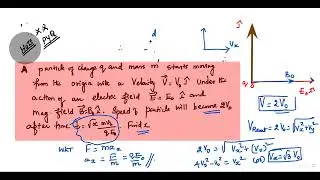 Hint X.R
PYQ
d
Vx
A particle of charge q and mass m starts moving
from the origin with a velocity V̄ = V₀ ĵ under the
action of an electric field Ē = E₀ î and
mag. field B̄ = B₀ î. Speed of particle will become 2V₀
after time t = √x mV₀ / qE₀. Find x
WKT F = max
ax = F/m = qE₀/m
ĵ
V₀
q
B₀
E₀
î
V = 2V₀
VResult = 2V₀ =
2V₀ = √Vx² + (V₀)²
4V₀² - V₀² = Vx² (or) Vx = √3 V₀